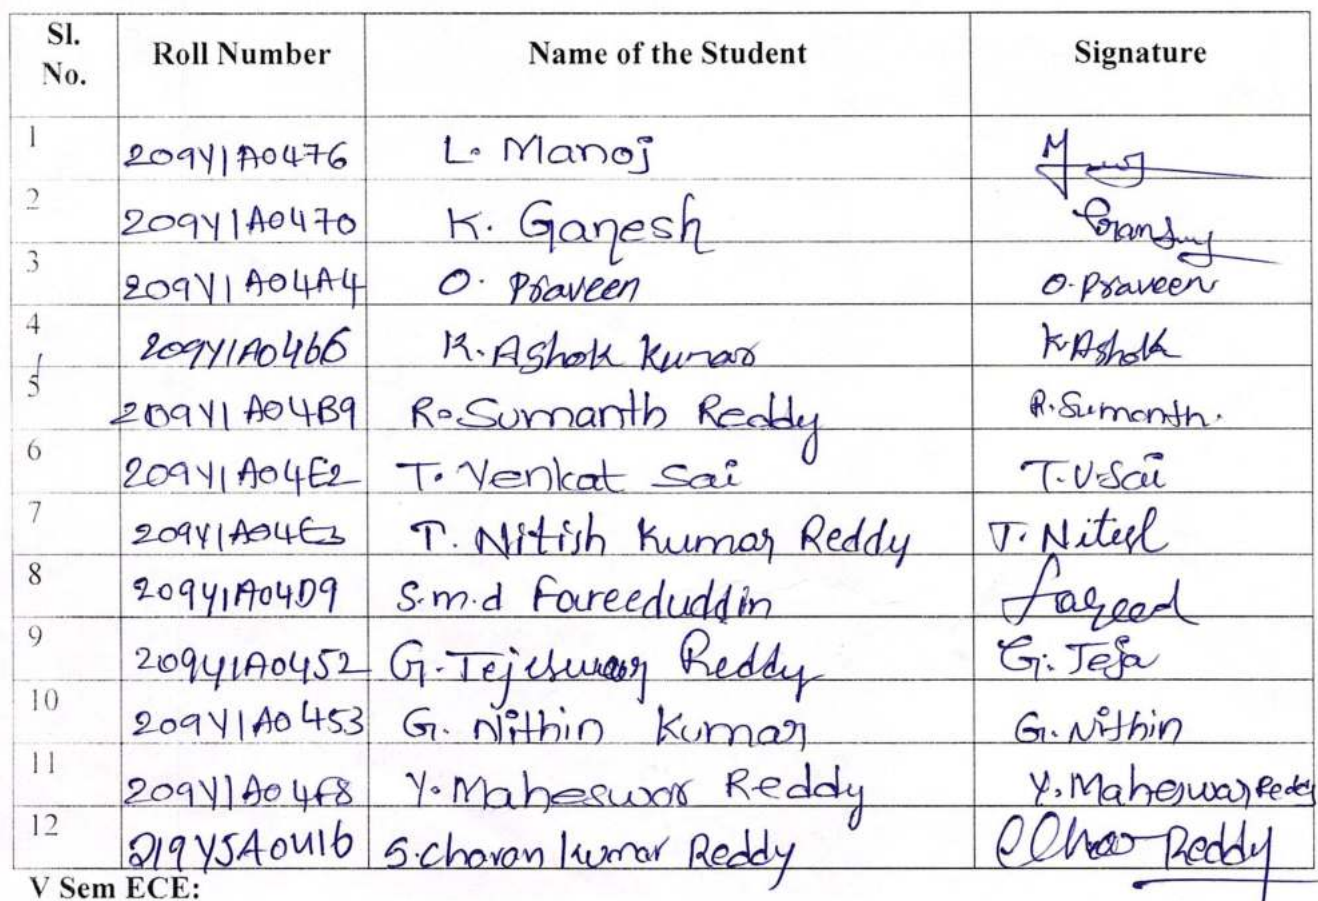 Sl. No. Roll Number Name of the Student Signature
1 209Y1A0476 L. Manoj
2 209Y1A0470 K. Ganesh
3 209Y1A04A4 O. Praveen O. Praveen
4 209Y1A0466 K. Ashok Kumar K Ashok
5 209Y1A04B9 R. Sumanth Reddy R. Sumanth.
6 209Y1A04E2 T. Venkat Sai T. V. Sai
7 209Y1A04E3 T. Nitish Kumar Reddy T. Nitish
8 209Y1A04D9 S.m.d Fareeduddin Fareed
9 209Y1A0452 G. Tejeswar Reddy G. Teja
10 209Y1A0453 G. Nithin Kumar G. Nithin
11 209Y1A04F8 Y. Maheswar Reddy Y. Maheswar Reddy
12 219Y5A0416 S. charan kumar Reddy Reddy
V Sem ECE: